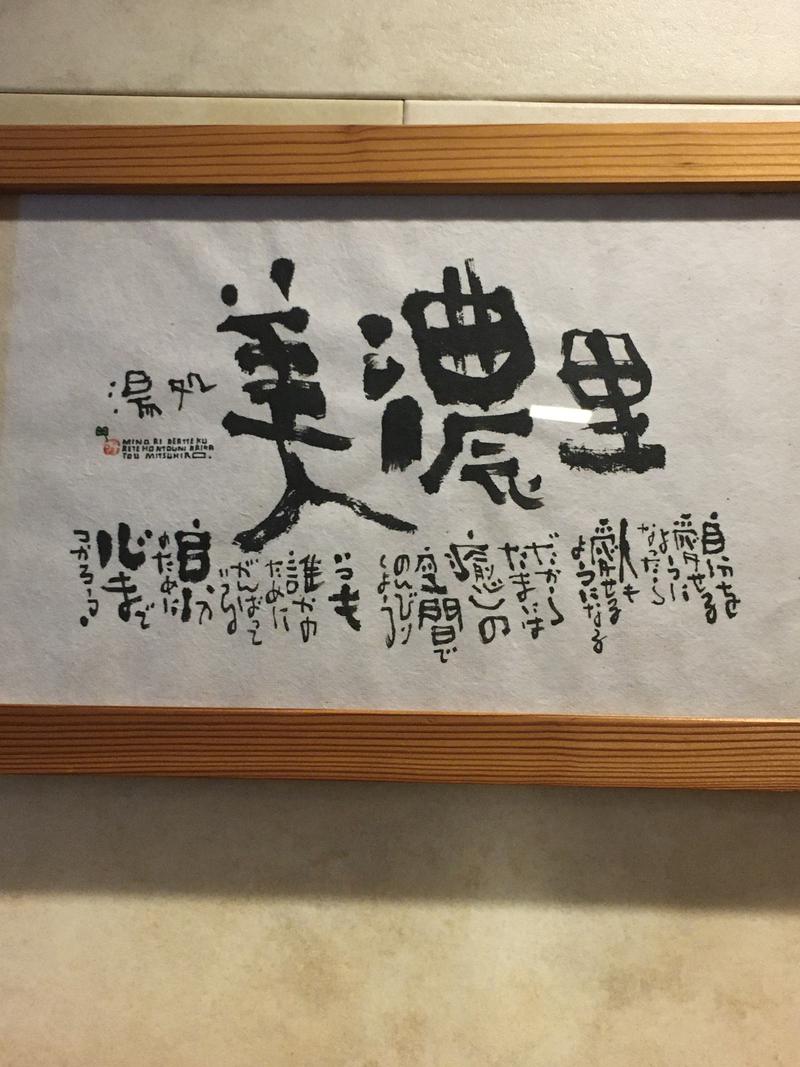 湯処
美濃里
MINORI DEATTEKU
RETE HONTOUNI ARIGA
TOU MITSUHIRO.
自分を
愛せる
ように
なったら
人も
愛せる
ようになる
だから
たまには
癒しの
空間で
のんびり
しよう
いつも
誰かの
ために
がんばって
いる
自分
のために
心まで
つかろう。